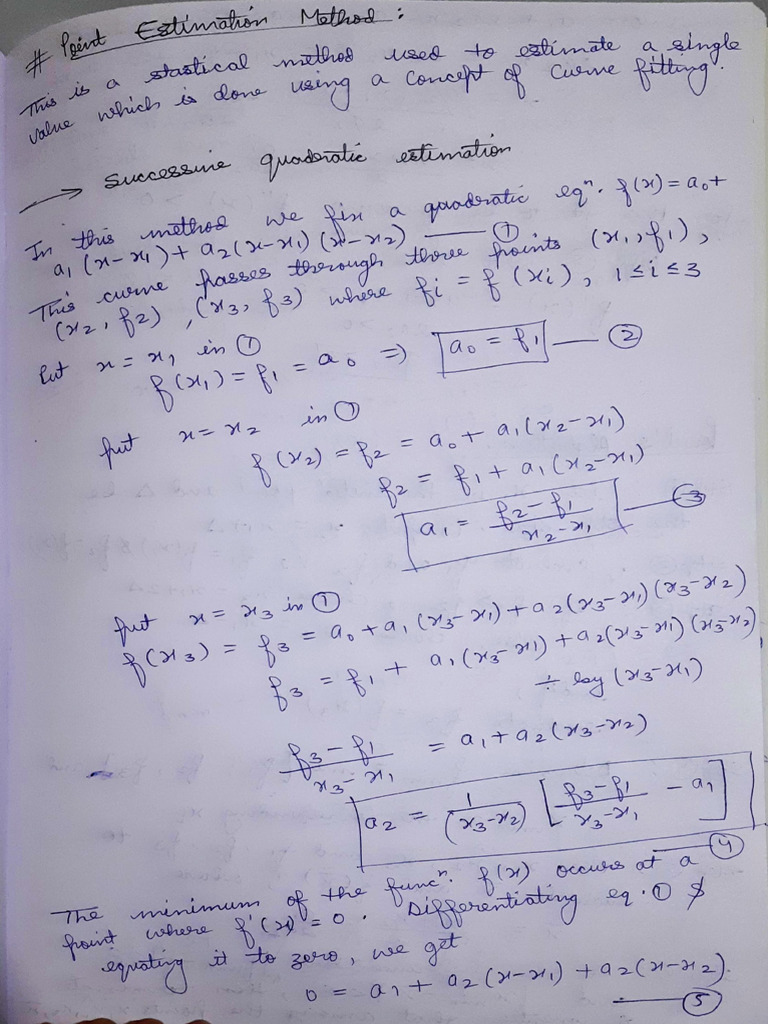 # Point Estimation Method :
This is a stastical method used to estimate a single
value which is done using a concept of curve fitting.
→ Successive quadratic estimation
In this method we fix a quadratic eqⁿ. f(x) = a₀ +
a₁(x-x₁) + a₂(x-x₁)(x-x₂) — ①
This curve passes through three points (x₁, f₁),
(x₂, f₂), (x₃, f₃) where fᵢ = f(xᵢ), 1≤i≤3
Put x = x₁ in ①
f(x₁) = f₁ = a₀ ⇒ a₀ = f₁ — ②
put x = x₂ in ①
f(x₂) = f₂ = a₀ + a₁(x₂-x₁)
f₂ = f₁ + a₁(x₂-x₁)
a₁ = (f₂-f₁)/(x₂-x₁) — ③
put x = x₃ in ①
f(x₃) = f₃ = a₀ + a₁(x₃-x₁) + a₂(x₃-x₁)(x₃-x₂)
f₃ = f₁ + a₁(x₃-x₁) + a₂(x₃-x₁)(x₃-x₂),
÷ by (x₃-x₁)
(f₃-f₁)/(x₃-x₁) = a₁ + a₂(x₃-x₂)
a₂ = 1/(x₃-x₂) [(f₃-f₁)/(x₃-x₁) - a₁] — ④
The minimum of the funcⁿ. f(x) occurs at a
point where f'(x) = 0. Differentiating eq. ① &
equating it to zero, we get
0 = a₁ + a₂(x-x₁) + a₂(x-x₂). — ⑤